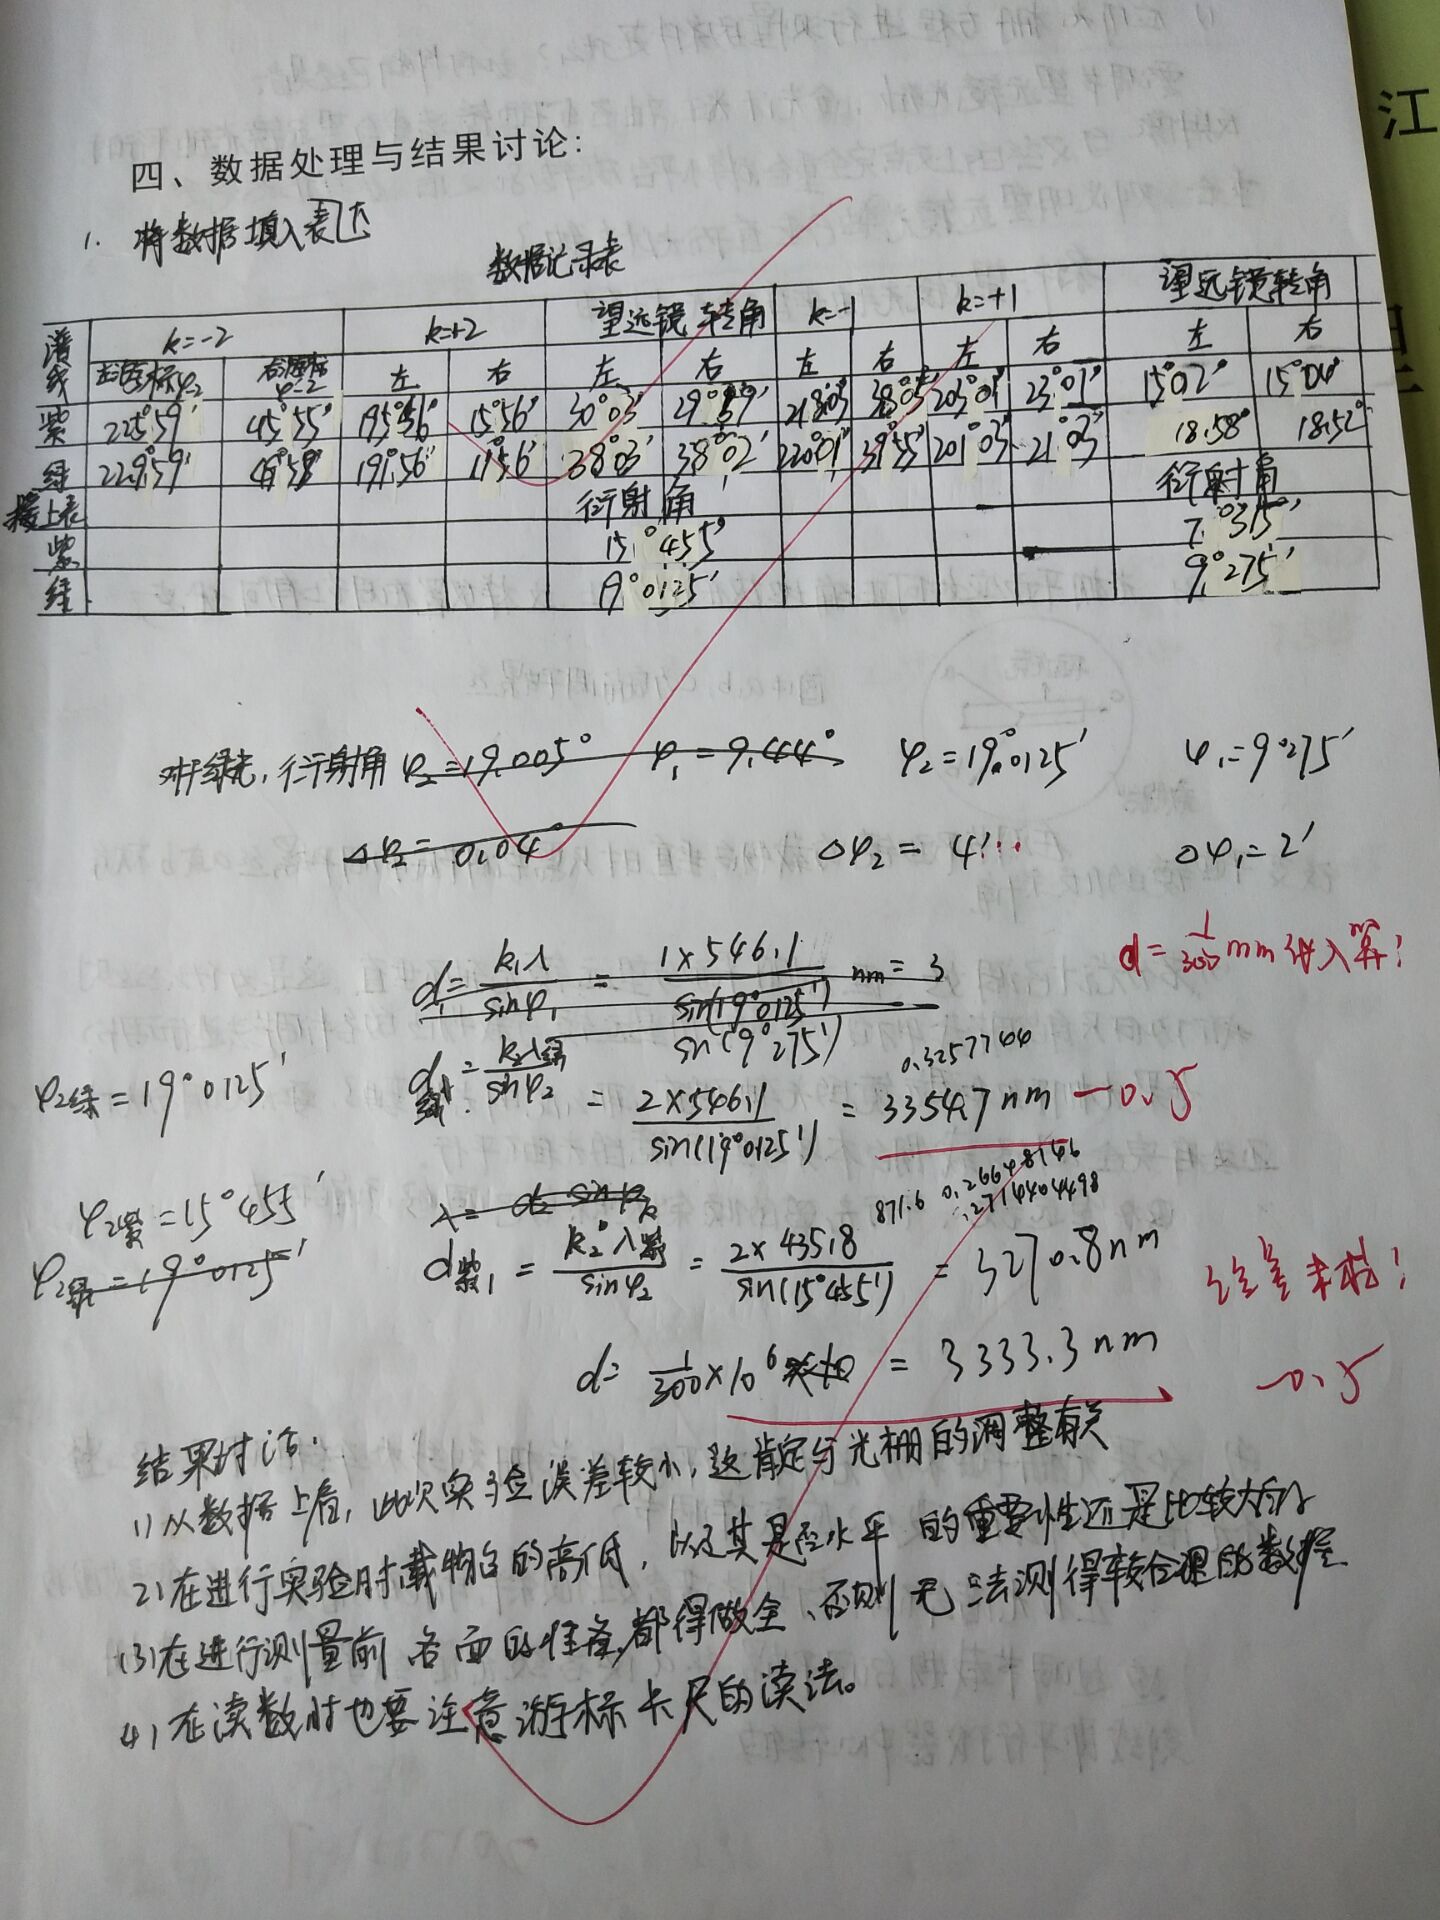 江
四、数据处理与结果讨论:
1. 将数据填入表达
数据记录表
谱线 k=-2 k=+2 望远镜转角 k=-1 k=+1 望远镜转角
左 右 左 右 左 右 左 右 左 右
紫 225°59′ 45°55′ 195°56′ 15°56′ 30°03′ 29°59′ 218°03′ 38°05′ 203°01′ 23°01′ 15°02′ 15°04′
绿 229°59′ 49°58′ 191°56′ 11°56′ 38°03′ 38°02′ 220°01′ 39°55′ 201°03′ 21°03′ 18.58° 18.52°
接上表 衍射角 衍射角
紫 15°455′ 7°315′
绿 19°0125′ 9°275′
对于绿光,衍射角 φ₂=19.005° φ₁=9.44° φ₂=19°0125′ φ₁=9°275′
△φ₂=0.04° △φ₂=4′ △φ₁=2′
d=1/300 mm 代入算!
d₁=k₁λ/sinφ₁=1×546.1/sin(19°0125′) nm=3
sin(9°275′)
0.3257744
φ₂绿=19°0125′ d绿=k₂λ绿/sinφ₂=2×546.1/sin(19°0125′)=3354.7nm -0.5
871.6 0.26648146
.2714404498
φ₂紫=15°455′
φ₂绿=19°0125′ d紫₁=k₂λ紫/sinφ₂=2×435.8/sin(15°455′)=3270.8nm
d=1/300×10⁶=3333.3nm -0.5
结果讨论:
1)从数据上看,此次实验误差较小,这肯定与光栅的调整有关
2)在进行实验时载物台的高低,以及其是否水平的重要性还是比较大的
(3)在进行测量前各面的准备都得做全、否则无法测得较合理的数据
4)在读数时也要注意游标卡尺的读法。